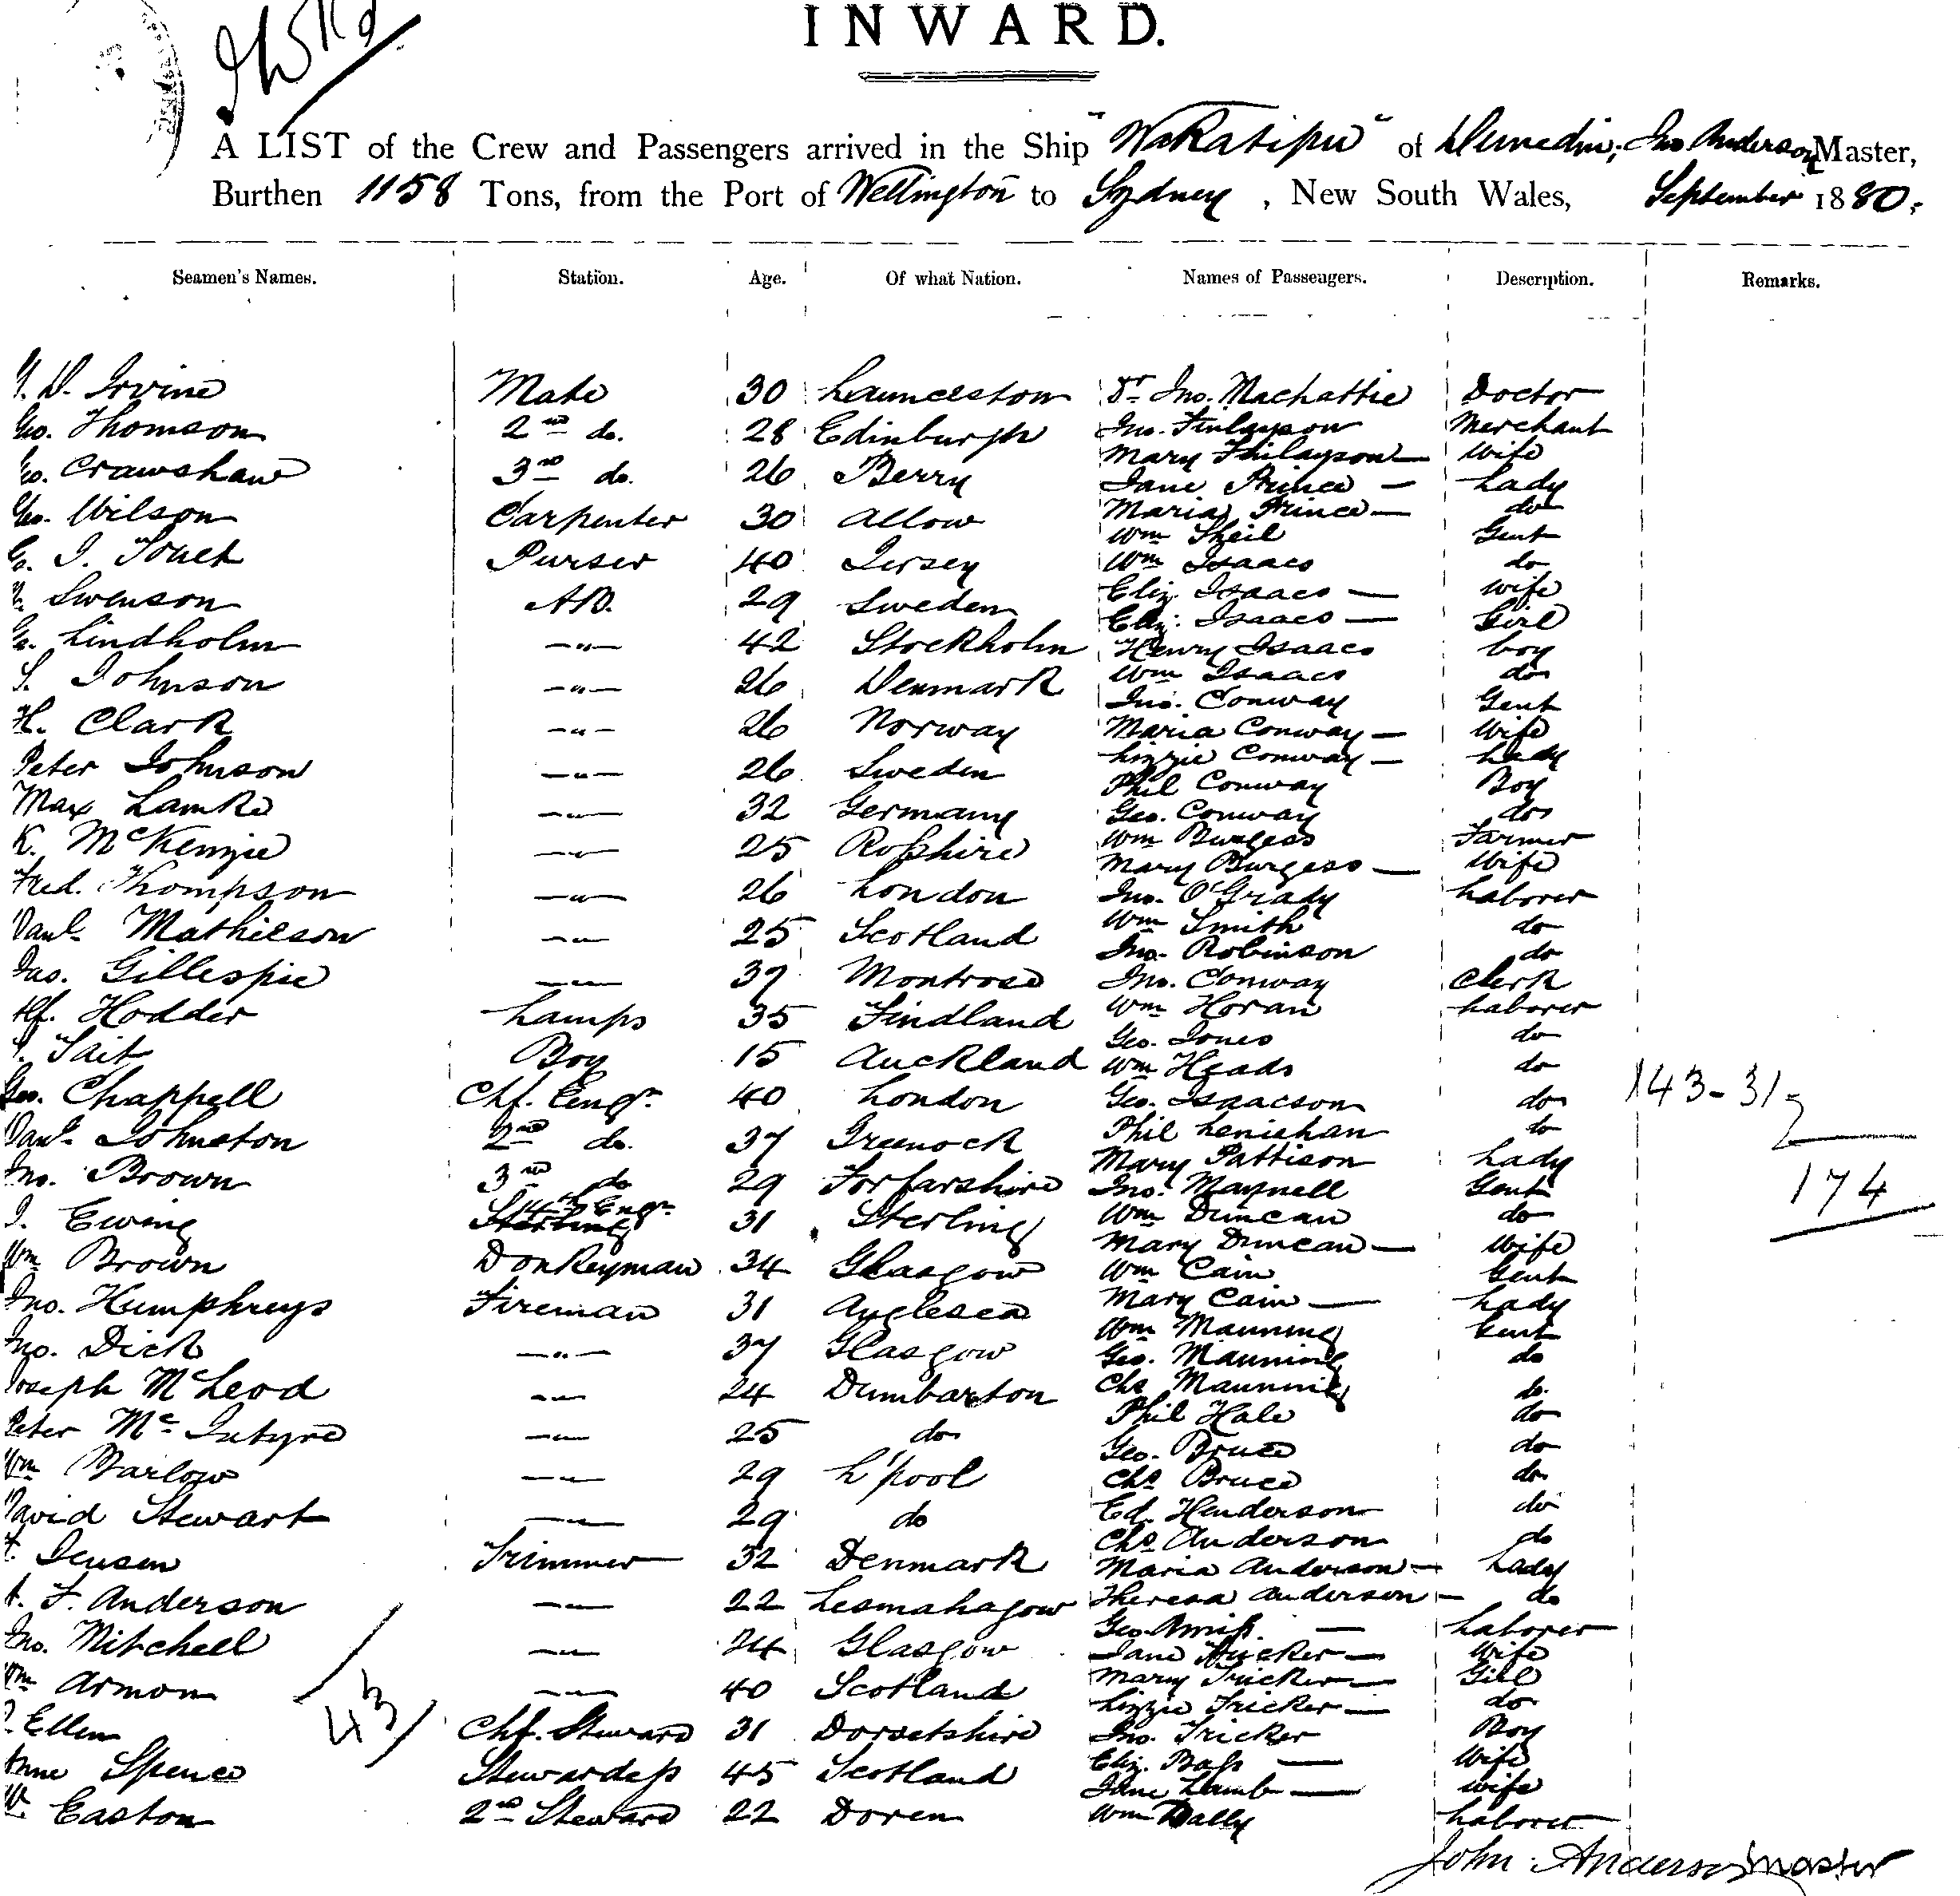 INWARD.
A LIST of the Crew and Passengers arrived in the Ship "Wakatipu" of Dunedin, Jno. Anderson Master,
Burthen 1158 Tons, from the Port of Wellington to Sydney, New South Wales, September 1880.
Seamen's Names. Station. Age. Of what Nation. Names of Passengers. Description. Remarks.
D. Irvine Mate 30 Launceston Dr Jno. Machattie Doctor
Geo. Thomson 2nd do. 28 Edinburgh Jno. Finlayson Merchant
Mary Finlayson — Wife
Geo. Crawshaw 3rd do. 26 Berry Jane Prince — Lady
Geo. Wilson Carpenter 30 Allow Maria Prince — do
Wm Sheil Gent
J. Purser 40 Jersey Wm Isaacs do
Swenson AB. 29 Sweden Eliz. Isaacs — Wife
Eliz. Isaacs — Girl
Lindholm —"— 42 Stockholm Henry Isaacs boy
Johnson —"— 26 Denmark Wm Isaacs do
Jno. Conway Gent
H. Clark —"— 26 Norway Maria Conway — Wife
Peter Johnson —"— 26 Sweden Lizzie Conway — Lady
Phil Conway Boy
Max Lamke —"— 32 Germany Geo. Conway do
K. McKenzie —"— 25 Rosshire Wm Burgess Farmer
Mary Burgess — Wife
Fred. Thompson —"— 26 London Jno. O'Grady Laborer
Danl. Mathieson —"— 25 Scotland Wm Smith do
Jno. Robinson do
Jas. Gillespie —"— 37 Montrose Jno. Conway Clerk
Alf. Hodder Lamps 35 Findland Wm Horan Laborer
Geo. Jones do
Tait Boy 15 Auckland Wm Heads do
Geo. Chappell Chf. Engr. 40 London Geo. Isaacson do 143-31
Danl. Johnston 2nd do. 37 Greenock Phil Leniehan do
Mary Pattison Lady
Jno. Brown 3rd do 29 Forfarshire Jno. Maynell Gent 174
J. Ewing 4th Engr. 31 Sterling Wm Duncan do
Mary Duncan — Wife
Wm Brown Donkeyman 34 Glasgow Wm Cain Gent
Jno. Humphreys Fireman 31 Anglesea Mary Cain — Lady
Wm Manning Gent
Jno. Dick —"— 37 Glasgow Geo. Manning do
Joseph McLeod —"— 24 Dumbarton Chs Manning do.
Phil Hale do
Peter McIntyre —"— 25 do Geo. Bruce do
Wm Barlow —"— 29 L'pool Chs Bruce do
David Stewart —"— 29 do Ed. Henderson do
Chs Anderson do
Jensen Trimmer 32 Denmark Maria Anderson — Lady
F. Anderson —"— 22 Lesmahagow Theresa Anderson — do
Geo. — Laborer
Jno. Mitchell —"— 24 Glasgow Jane Tricker — Wife
Mary Tricker — Girl
Wm Armon —"— 40 Scotland Lizzie Tricker — do
43
Ellen Chf. Steward 31 Dorsetshire Jno. Tricker Boy
Anne Spence Stewardess 45 Scotland Eliz. Bass — Wife
Jane Lamb — wife
Easton 2nd Steward 22 Doren Wm Dally Laborer
John Anderson master